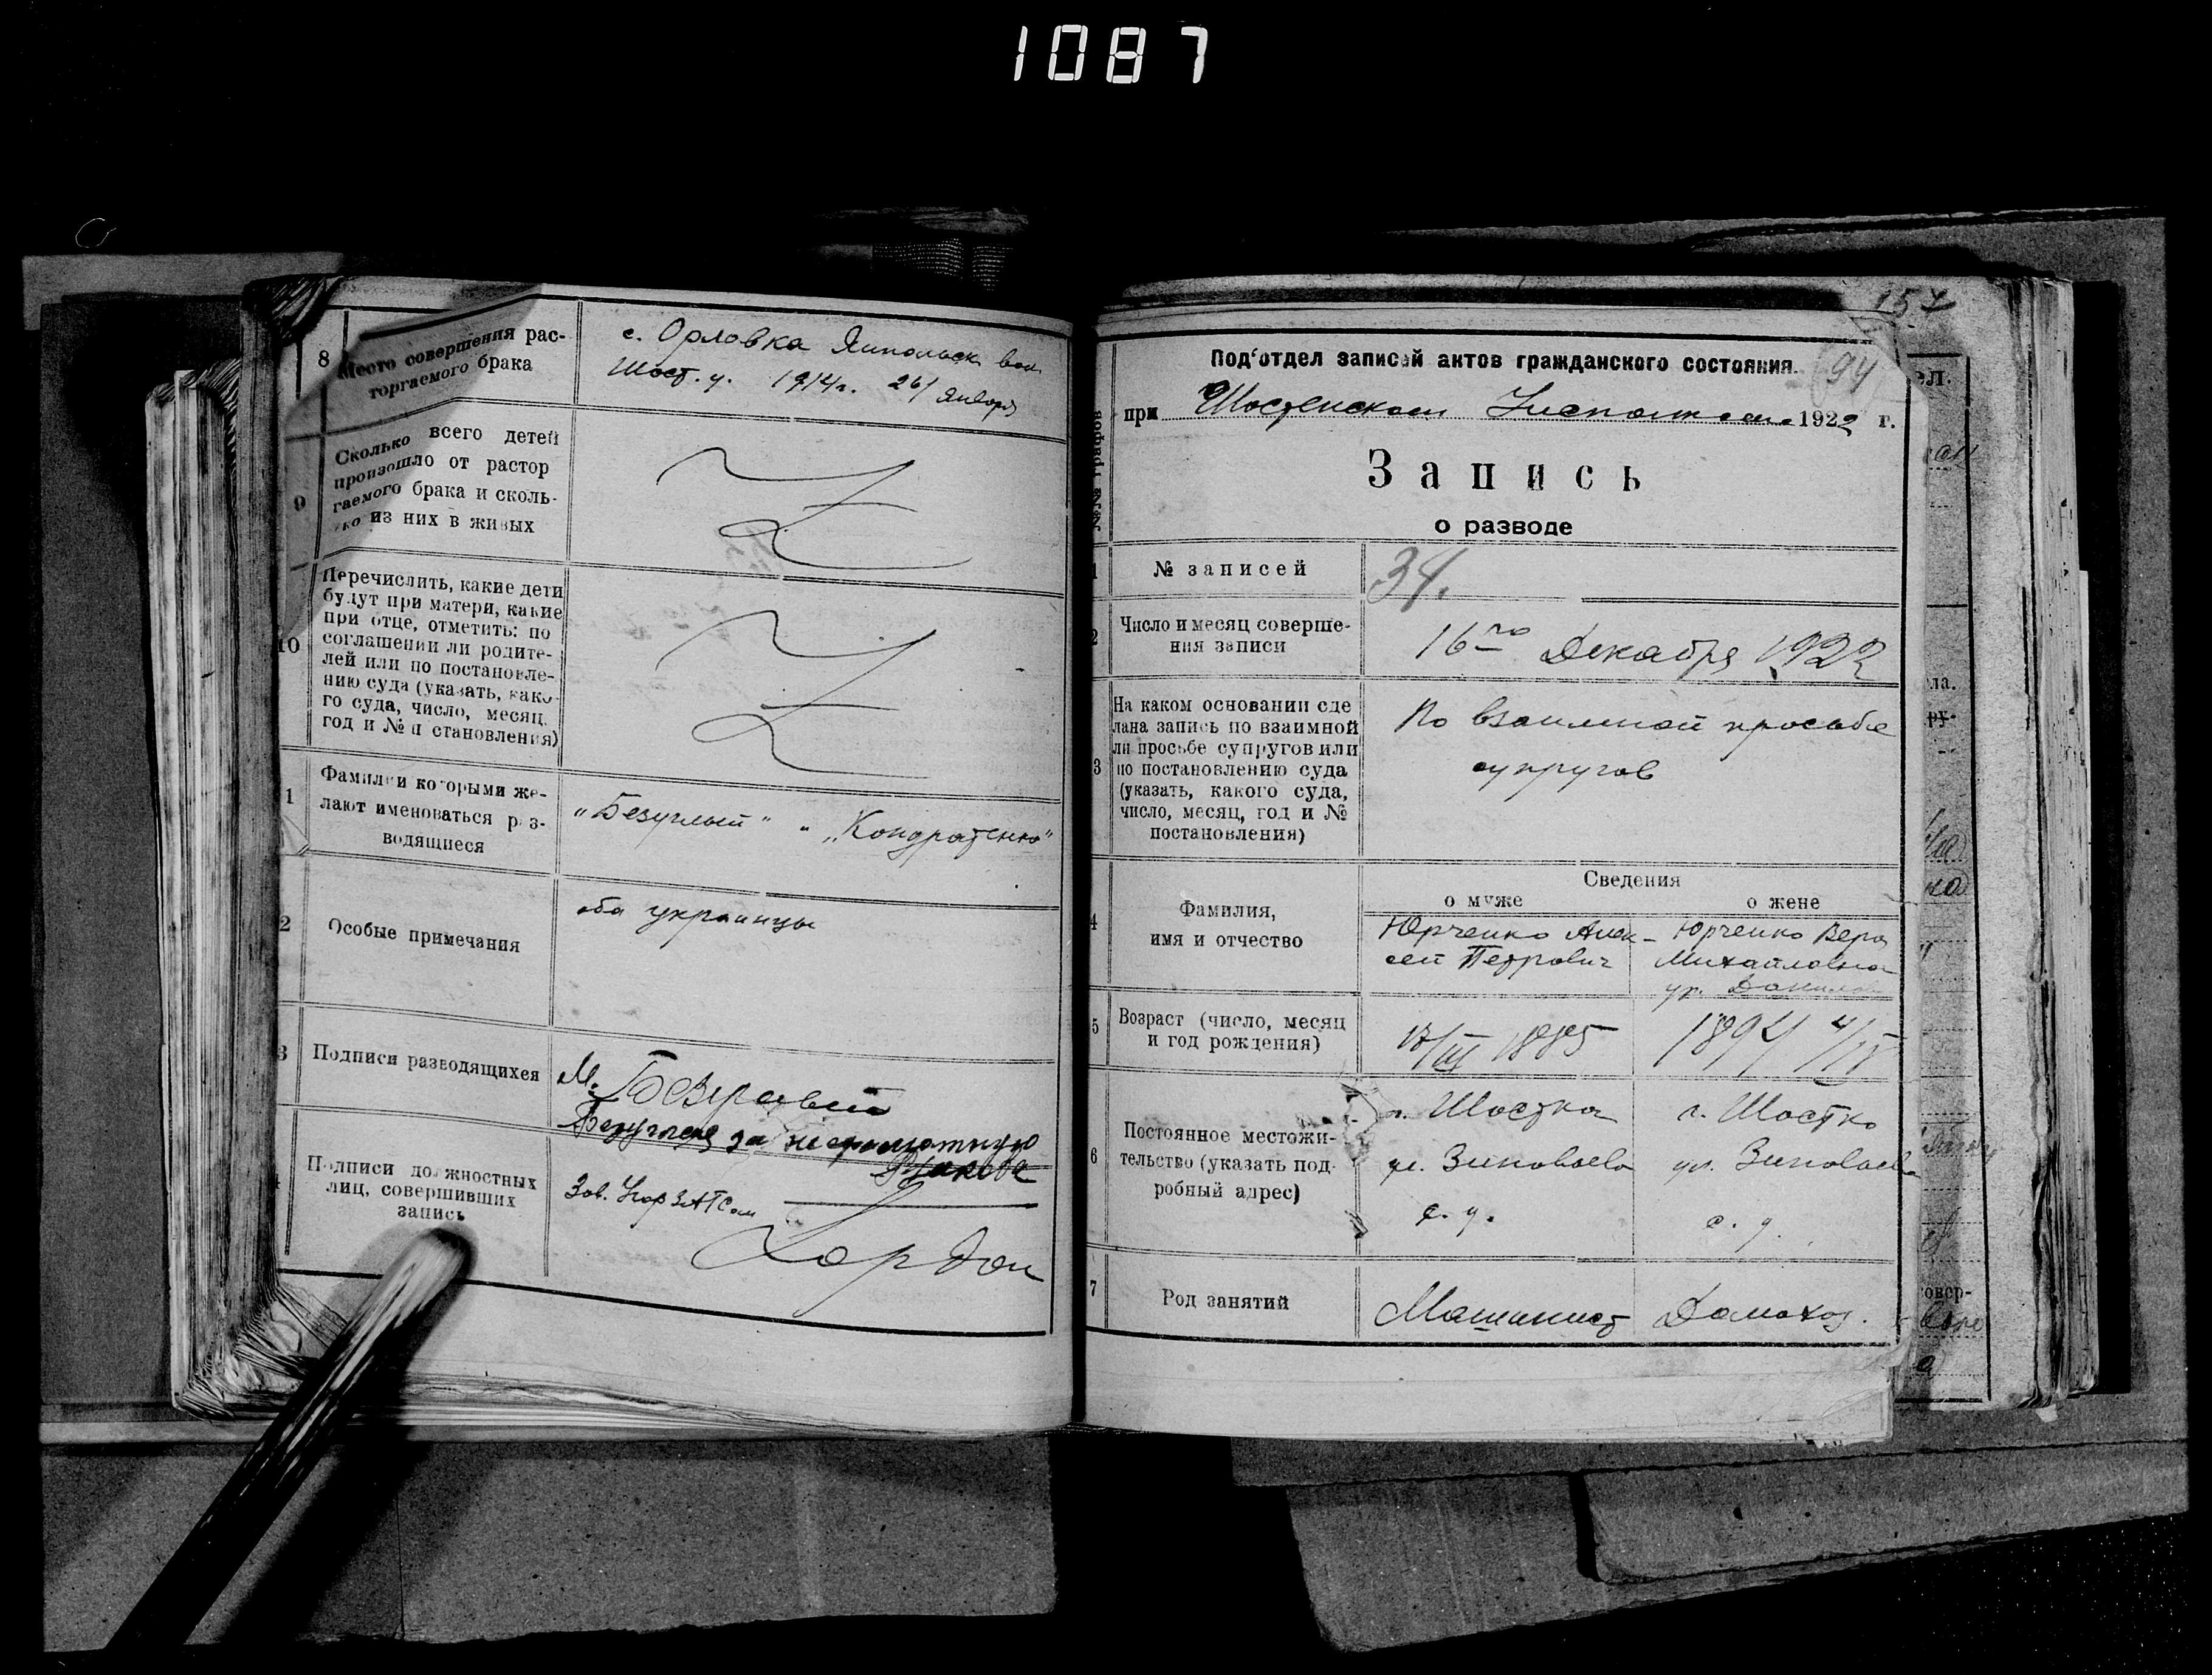 1087
8
Место совершения рас-
торгаемого брака
с. Орловка Ямпольск вол.
Шост. у. 1914 г. 26/ января
9
Сколько всего детей
произошло от растор
гаемого брака и сколь-
ко из них в живых
10
Перечислить, какие дети
будут при матери, какие
при отце, отметить: по
соглашении ли родите-
лей или по постановле-
нию суда (указать, како-
го суда, число, месяц,
год и № п становления)
1
Фамилии которыми же-
лают именоваться раз-
водящиеся
"Безуглый" " "Кондратенко"
2
Особые примечания
оба украинцы
3
Подписи разводящихея
М. Безуглый
Безуглая за неграмотную
Подписи должностных
лиц, совершивших
запись
Зав. ЗАГСом
Гордон
157
94
Под'отдел записей актов гражданского состояния.
при Шостенском Исполкоме 1922 г.
№№ графов
Запись
о разводе
1
№ записей
34.
2
Число и месяц соверше-
ния записи
16го Декабря 1922
3
На каком основании сде
лана запись по взаимной
ли просьбе супругов или
по постановлению суда
(указать, какого суда,
число, месяц, год и №
постановления)
По взаимной просьбе
супругов
Сведения
о муже
о жене
4
Фамилия,
имя и отчество
Юрченко Алек-
сей Петрович
Юрченко Вера
Михайловна
ур.
5
Возраст (число, месяц
и год рождения)
17/III 1885
1894 4/IV
6
Постоянное местожи-
тельство (указать под-
робный адрес)
г. Шостка
ул. Зиновьева
с. у.
г. Шостка
ул. Зиновьева
с. у.
7
Род занятий
Машинист
Домохоз.